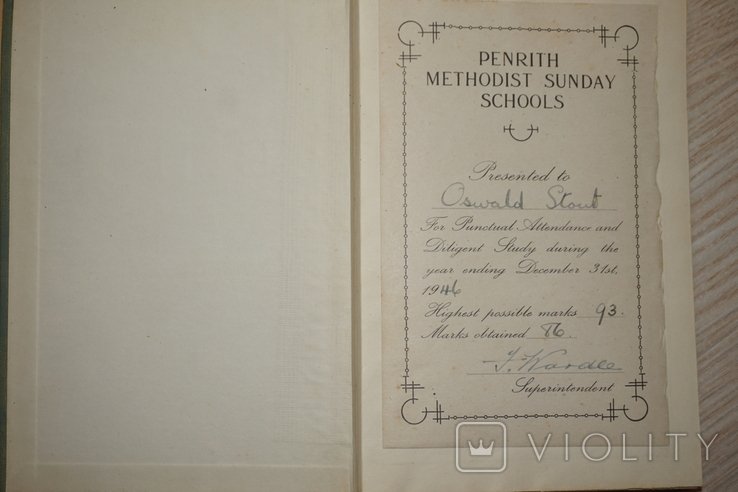 PENRITH
METHODIST SUNDAY
SCHOOLS
Presented to
Oswald Stout
For Punctual Attendance and
Diligent Study during the
year ending December 31st,
1946
Highest possible marks 93.
Marks obtained 86.
F. Wardle
Superintendent
VIOLITY